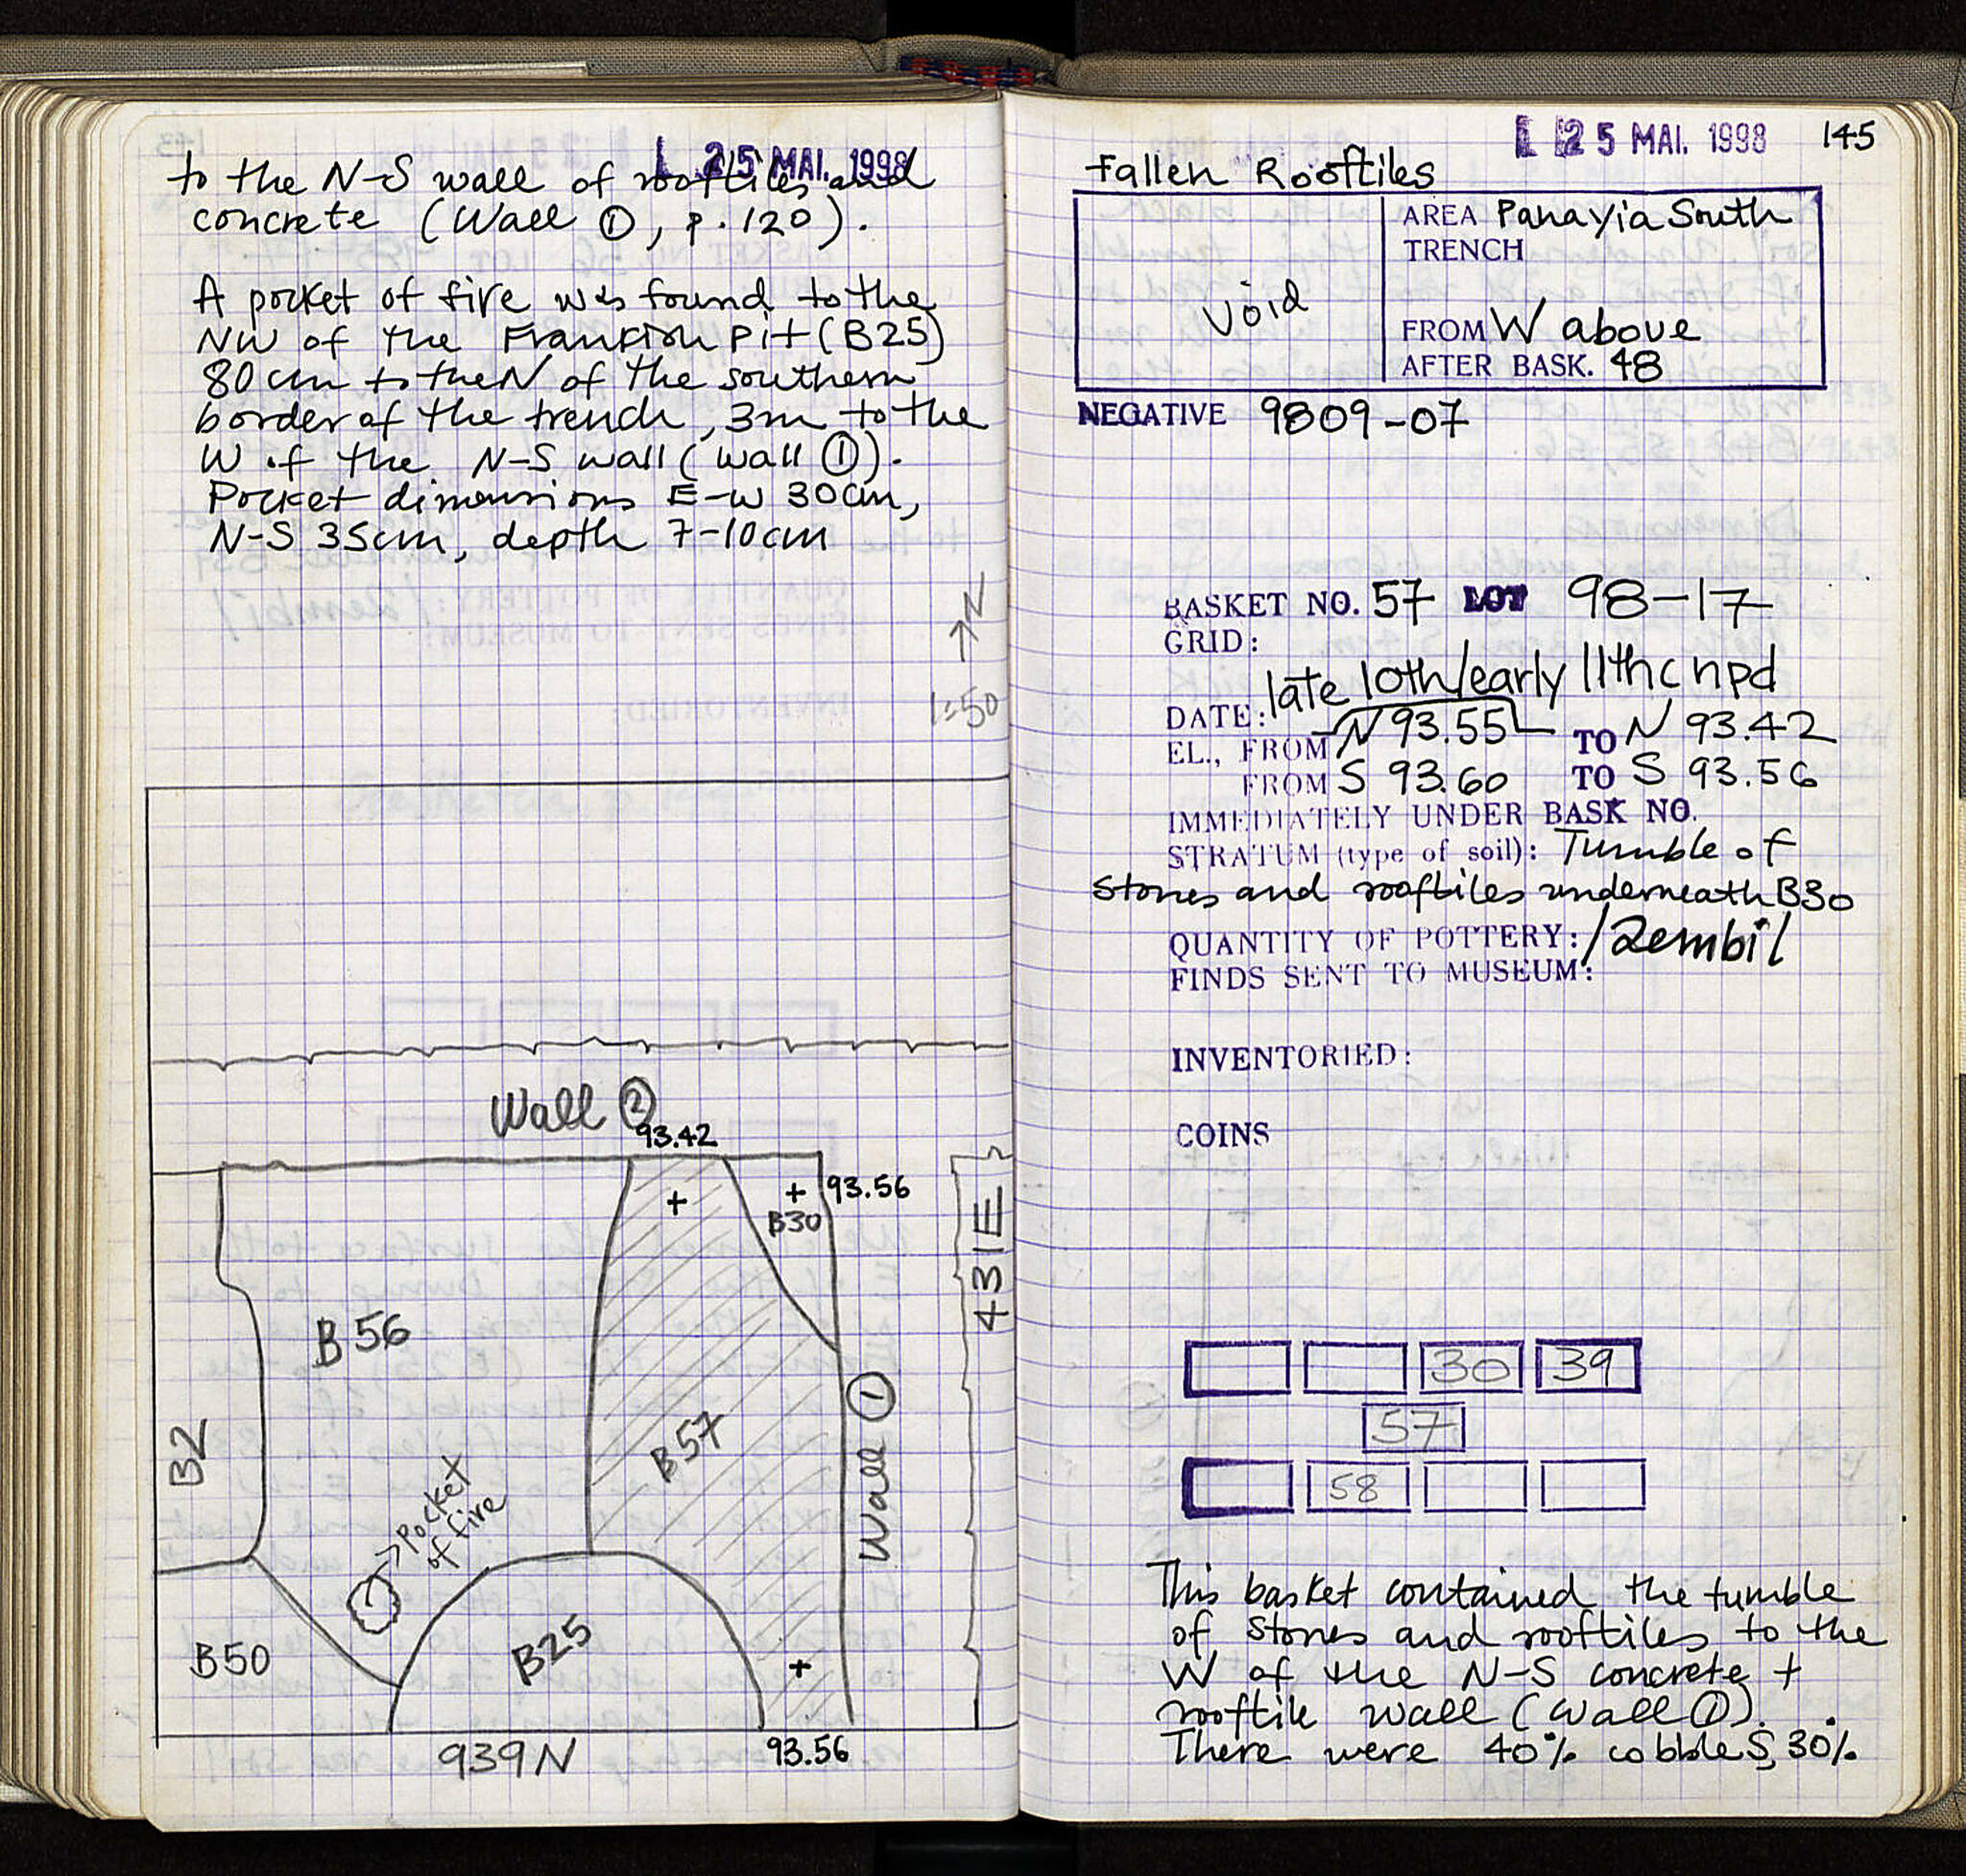 25 MAI. 1998
to the N-S wall of rooftiles and
concrete (Wall ①, p. 120).
A pocket of fire was found to the
NW of the Frankish pit (B25)
80cm to the N of the southern
border of the trench, 3m to the
W of the N-S wall (wall ①).
Pocket dimensions E-W 30cm,
N-S 35cm, depth 7-10cm
N
1:50
Wall ②
93.42
93.56
B30
431E
B56
B57
Wall ①
B2
Pocket
of fire
B50
B25
939N
93.56
25 MAI. 1998
145
Fallen Rooftiles
AREA Panayia South
TRENCH
Void
FROM W above
AFTER BASK. 48
NEGATIVE 9809-07
BASKET NO. 57 LOT 98-17
GRID:
late 10th/early 11thc npd
DATE:
EL., FROM N 93.55 TO N 93.42
FROM S 93.60 TO S 93.56
IMMEDIATELY UNDER BASK NO.
STRATUM (type of soil): Tumble of
stones and rooftiles underneath B30
QUANTITY OF POTTERY: 1 zembil
FINDS SENT TO MUSEUM:
INVENTORIED:
COINS
30 39
57
58
This basket contained the tumble
of stones and rooftiles to the
W of the N-S concrete +
rooftile wall (wall ①).
There were 40% cobbles, 30%